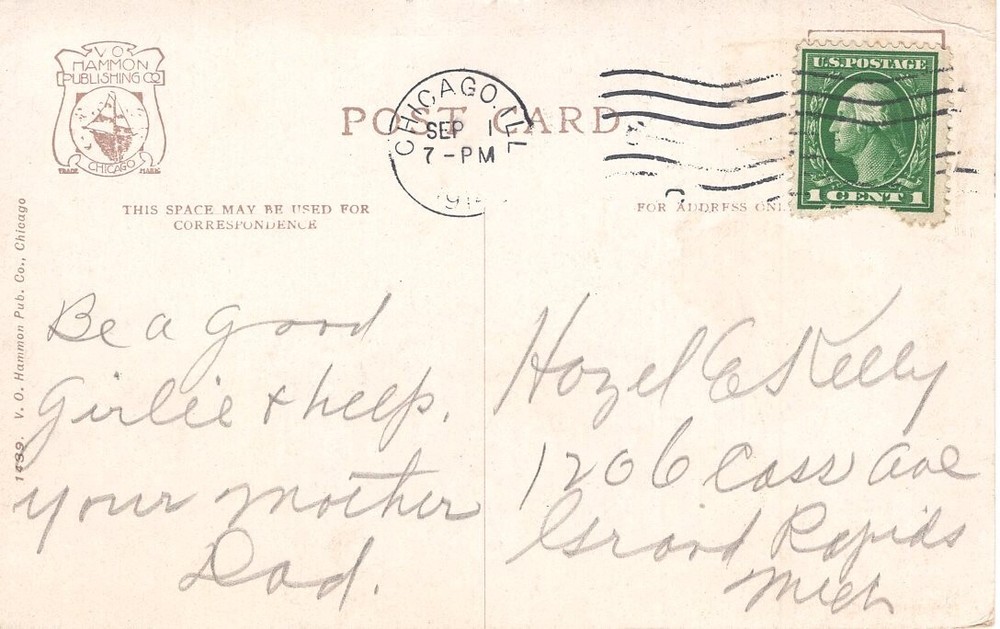 V.O.
HAMMON
PUBLISHING CO
CHICAGO
TRADE MARK
POST CARD
CHICAGO, ILL
SEP 1
7-PM
U.S. POSTAGE
1 CENT 1
THIS SPACE MAY BE USED FOR
CORRESPONDENCE
FOR ADDRESS ONLY
1489. V. O. Hammon Pub. Co., Chicago
Be a good
Girlie & help.
your mother
Dad.
Hazel E Kelly
1206 Cass Ave
Grand Rapids
Mich